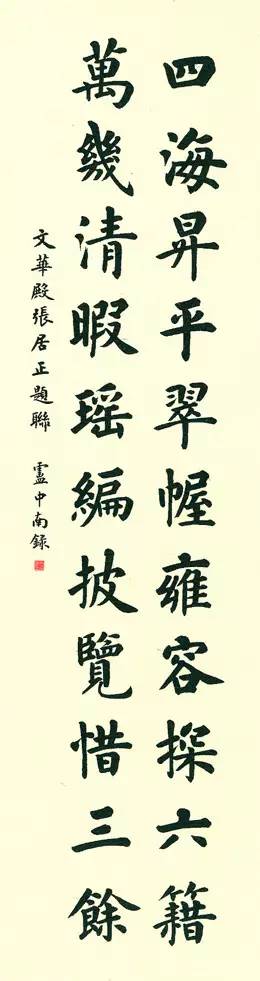 四海昇平翠幄雍容探六籍
萬幾清暇瑶編披覽惜三餘
文華殿張居正題聯 盧中南録